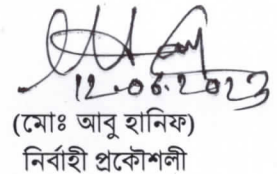 12.06.2023
(মোঃ আবু হানিফ)
নির্বাহী প্রকৌশলী